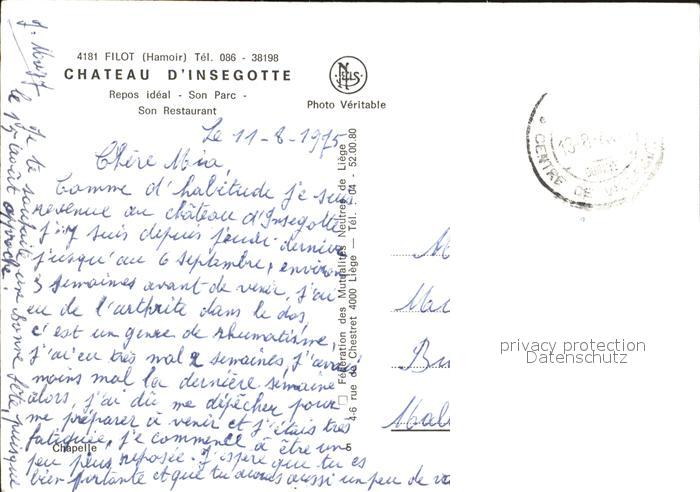 4181 FILOT (Hamoir) Tél. 086 - 38198
CHATEAU D'INSEGOTTE
Repos idéal - Son Parc -
Son Restaurant
NELS
Photo Véritable
CENTRE DE
Le 11-8-1975
Chère Mia,
Comme d'habitude je suis
revenue au château d'Insegotte
j'y suis depuis jeudi dernier
jusqu'au 6 septembre, environ
3 semaines avant de venir, j'ai
eu de l'arthrite dans le dos,
c'est un genre de rhumatisme,
j'ai eu très mal 2 semaines, j'avais
moins mal la dernière semaine
alors, j'ai dû me dépêcher pour
me préparer à venir et j'étais très
fatiguée, je commence à être un
peu plus reposée. J'espère que tu es
bien portante et que tu auras aussi un peu de
Je te souhaite une bonne fête, puisque
le 15 août approche.
Fédération des Mutualités Neutres de Liège
4-6 rue de Chestret 4000 Liège — Tél. 04 - 52.00.80
Chapelle
5
privacy protection
Datenschutz